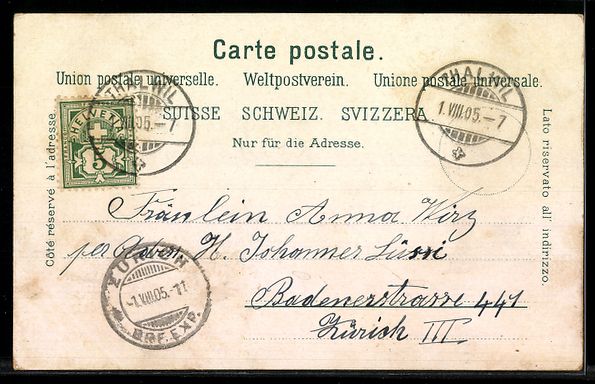 Carte postale.
Union postale universelle. Weltpostverein. Unione postale universale.
SUISSE SCHWEIZ. SVIZZERA.
Nur für die Adresse.
Côté réservé à l'adresse.
Lato riservato all' indirizzo.
HELVETIA
5
THALWIL
VIII.05.–7
THALWIL
1.VIII.05.–7
Fräulein Anna Wirz
per Adress. H. Johannes Süssi
Badenerstrasse 441
Zürich III.
ZÜRICH
–1.VIII.05.–11
BRF.EXP.